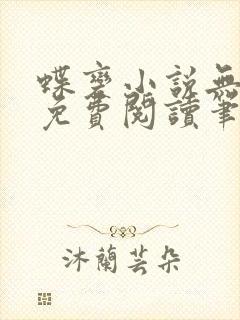 蝶變小說無
免費閱讀筆
沐蘭芸朵